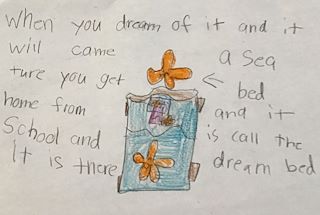 When you dream of it and it
will came
ture you get
home from
School and
it is there
a Sea
bed
and it
is call the
dream bed